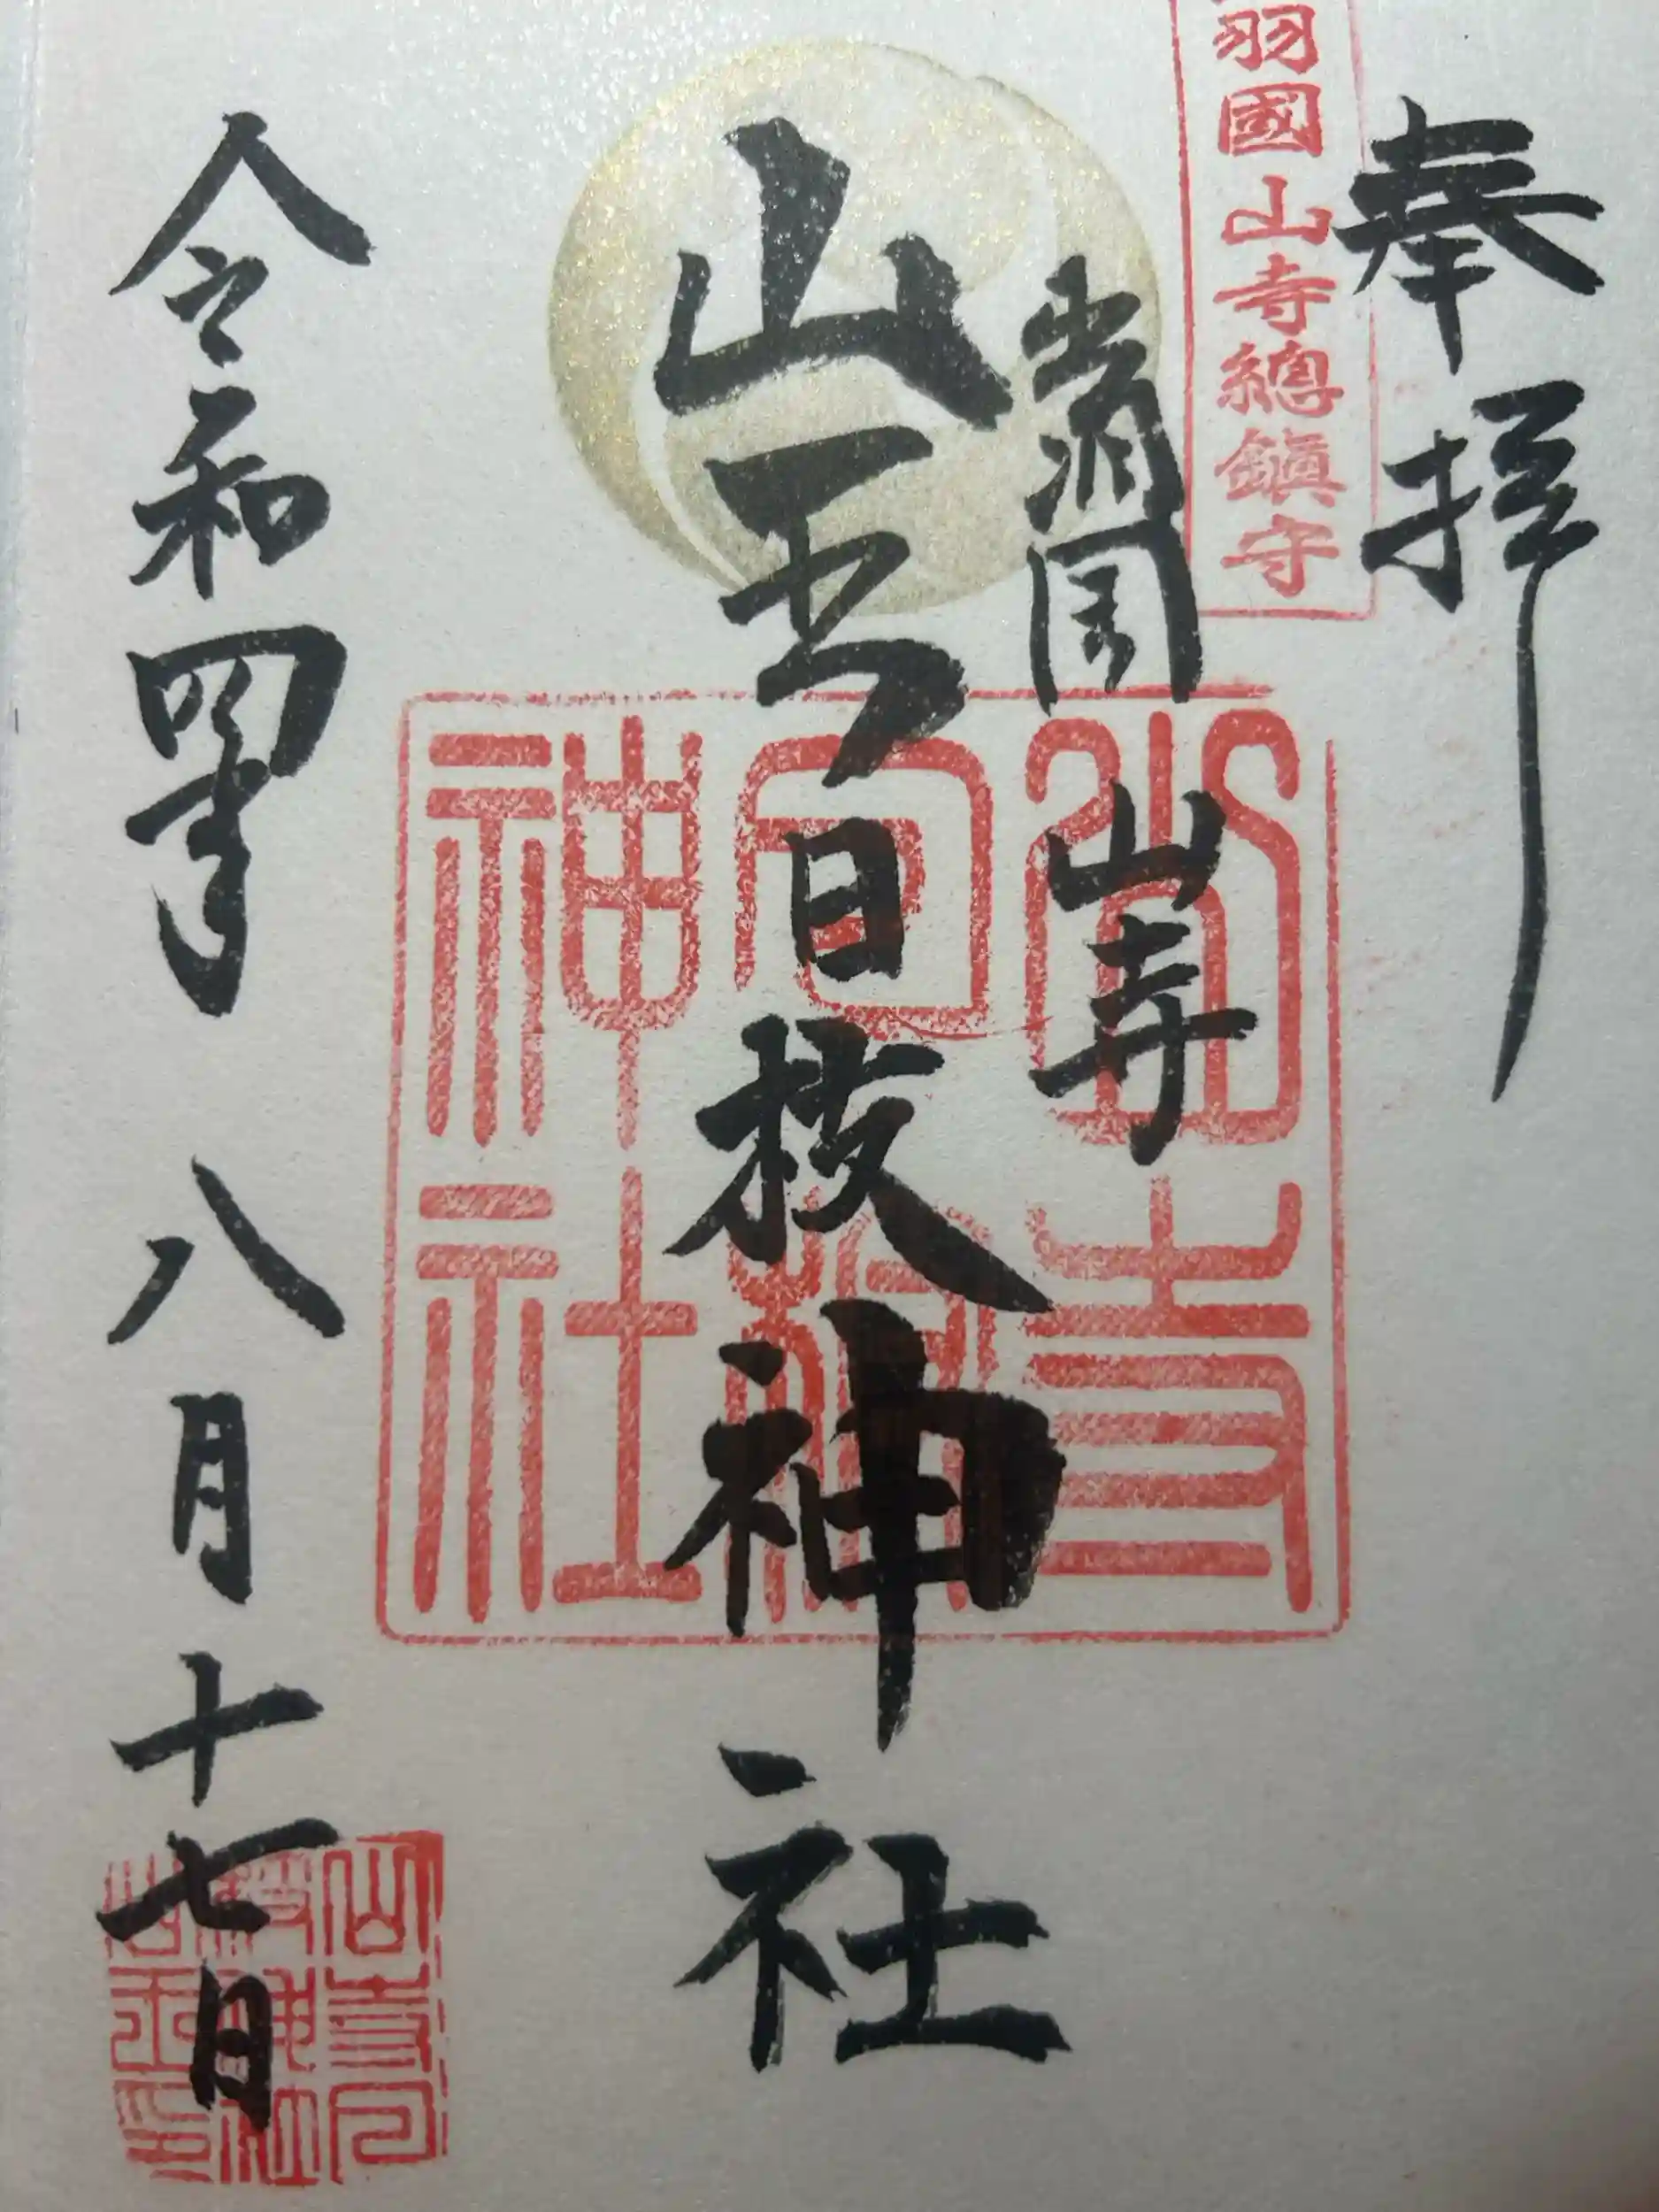 奉拝
羽國山寺總鎮守
山寺
山王日枝神社
山寺日枝神社
令和四年八月十七日
山寺日枝神社